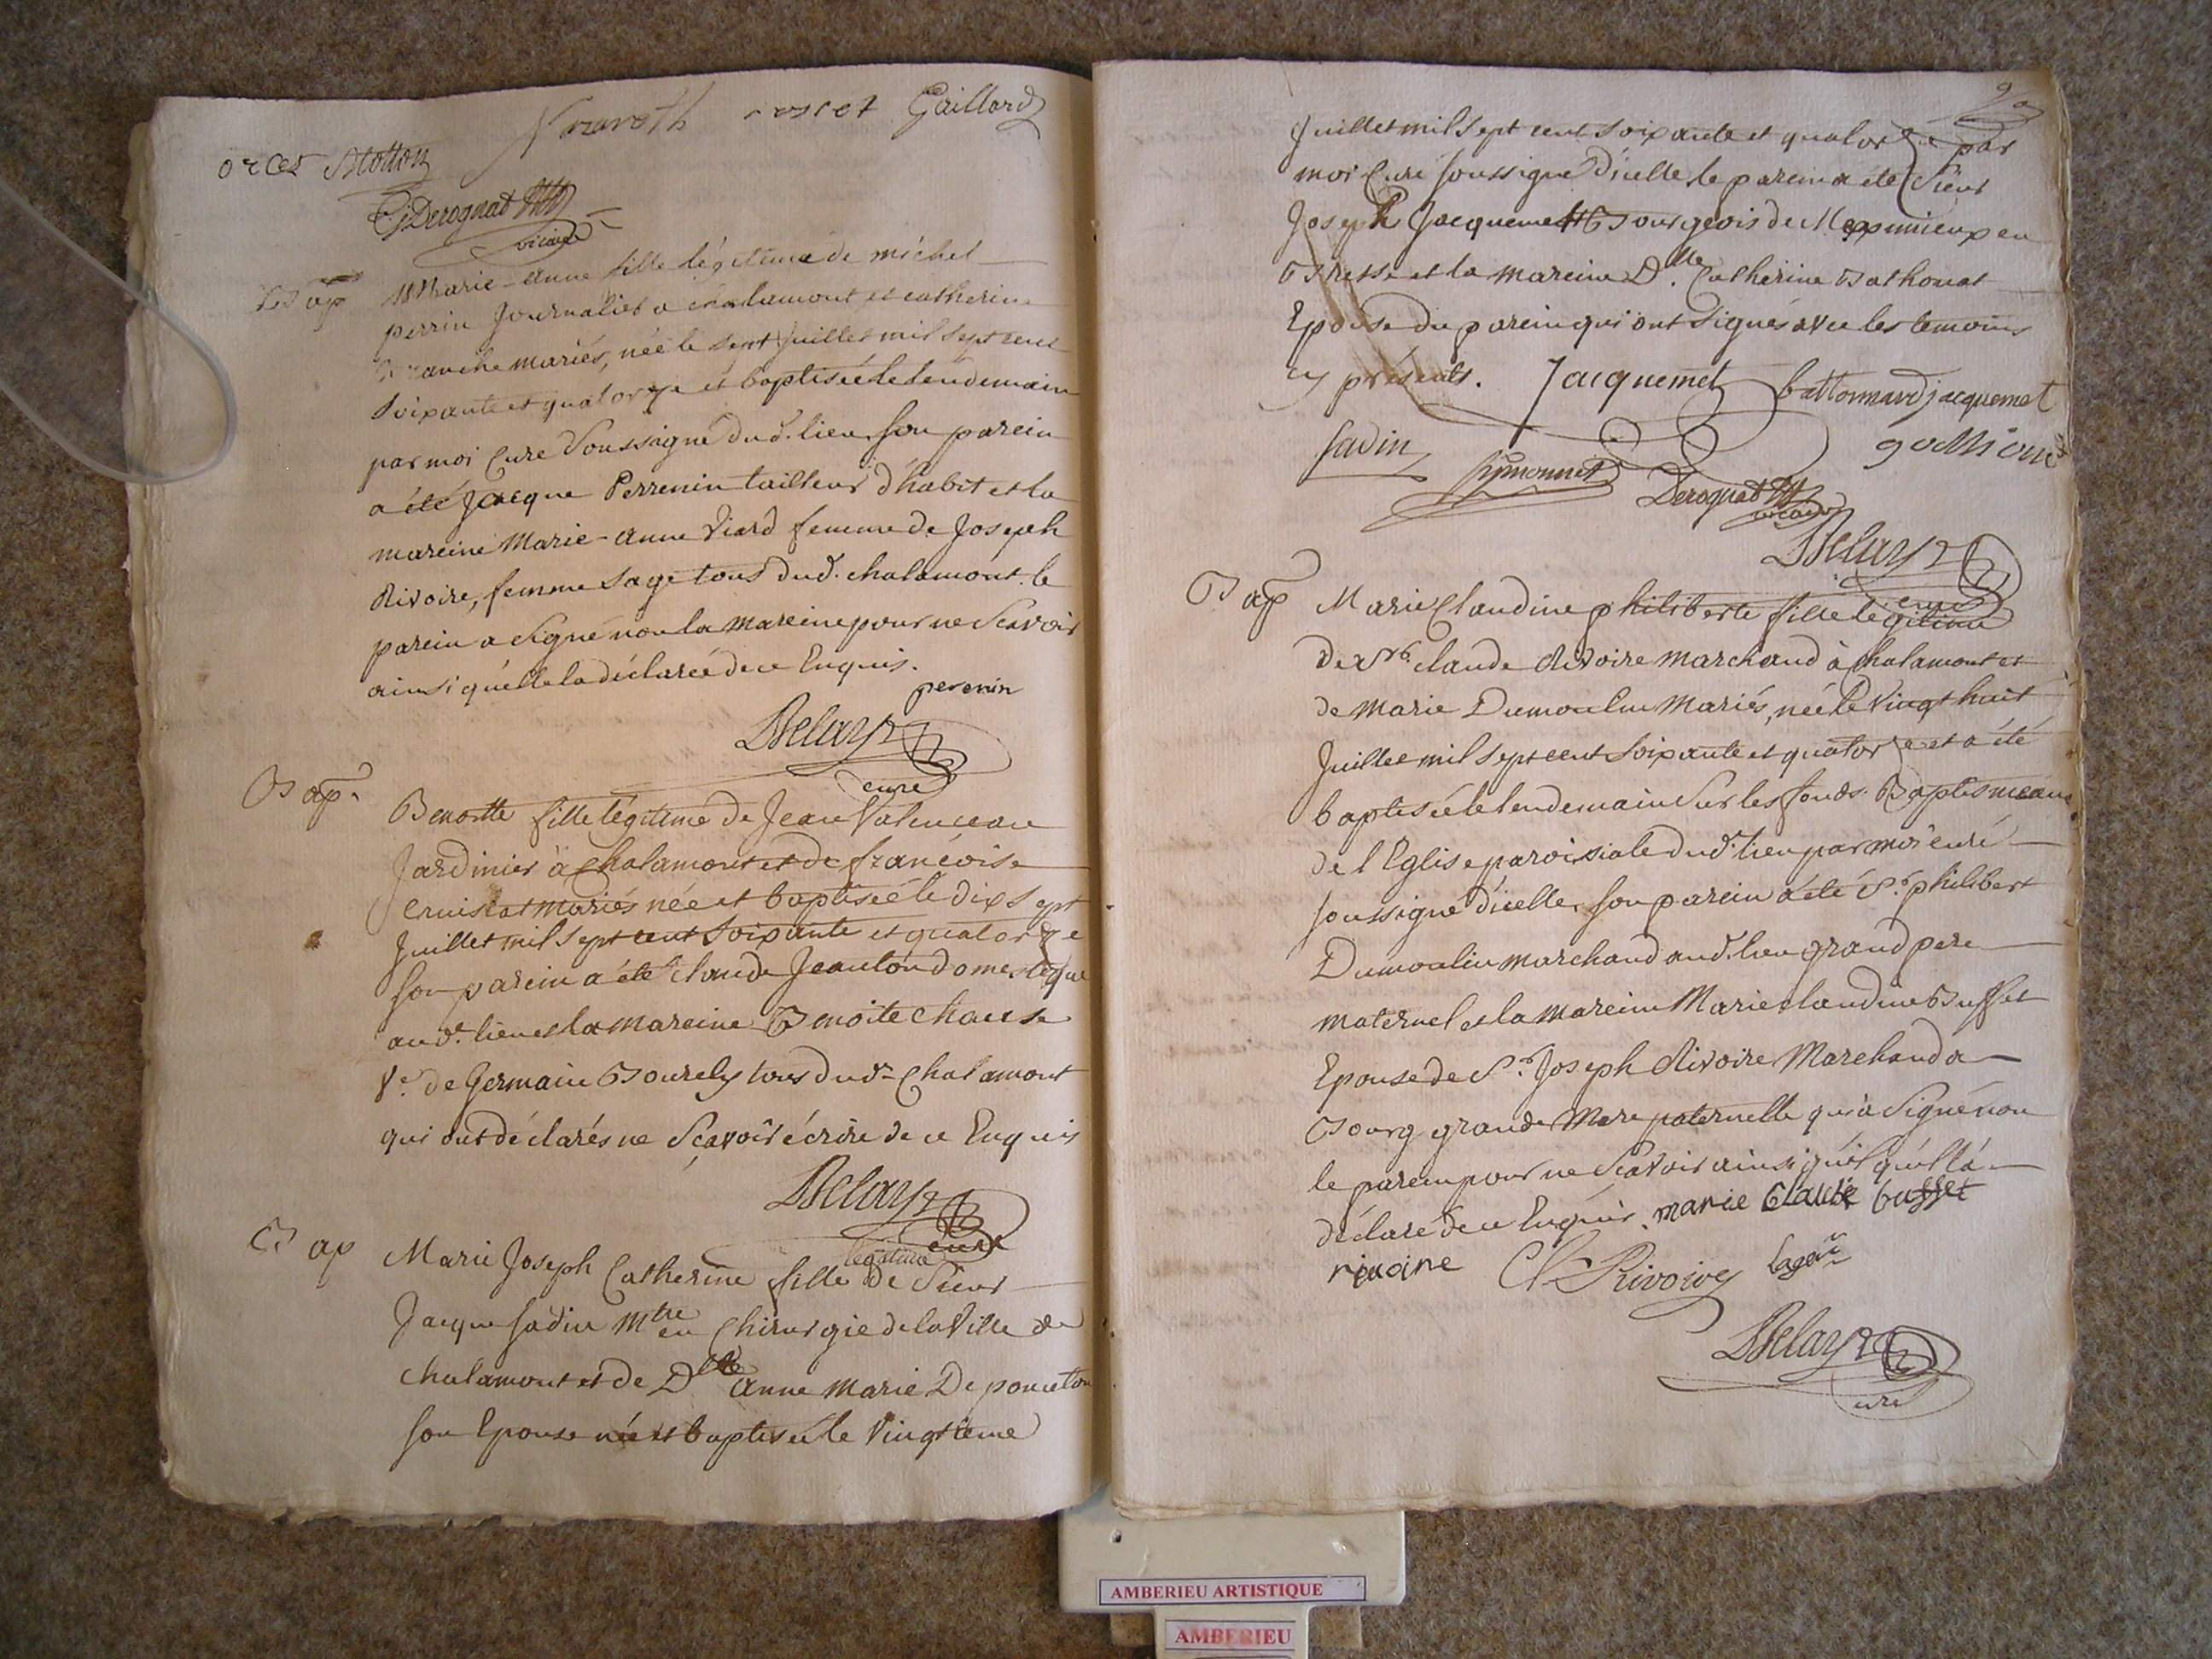 Gaillard
orcet Motton
Derognat
vicaire
Bap Marie-Anne fille légitime de michel
perrin Journalier a chalamont et catherine
mariés, née le sept Juillet mil sept cent
soixante et quatorze et baptisée le lendemain
par moi Curé Soussigné dud. lieu. son parein
a été Jacque Perrenin tailleur d'habit et la
mareine Marie-Anne Viard femme de Joseph
Rivoire, femme sage tous dud. chalamont. le
parein a signé non la mareine pour ne Scavoir
ainsi qu'elle la déclarée de ce Enquis.
perenin
Delays
curé
Bap. Benoitte fille légitime de Jean Valenceau
Jardinier à Chalamont et de françoise
mariés née et baptisée le dix sept
Juillet mil sept cent soixante et quatorze
son parein a été claude Jeanton domestique
aud. lieu et la mareine Benoite chausse
Ve. de Germain Bourely tous dud. Chalamont
qui ont déclarés ne Sçavoir écrire de ce Enquis
Delays
curé
Bap Marie Joseph Catherine fille légitime de Sieur
Jacque sadin Mtre en Chirurgie de la Ville de
chalamont et de Dlle Anne Marie De ponceton
son Epouse née et baptisée le Vingtieme
Juillet mil sept cent soixante et quatorze par
moi Curé soussigné d'icelle, le parein a été Sieur
Joseph Jacquemet Bourgeois de Meximieux en
Bresse et la mareine Dlle. Catherine Bathonat
Epouse du parein qui ont signés avec les temoins
cy présents. Jacquemet battonnard jacquemet
sadin Symonnet Derognat vicaire
Delays
curé
Bap Marie Claudine philiberte fille légitime
de Sr. claude Rivoire marchand à chalamont et
de Marie Dumoulin Mariés, née le Vingt huit
Juillet mil sept cent soixante et quatorze et a été
baptisée le lendemain sur les fonds Baptismeaux
de l'Eglise paroissiale dud. lieu par moi curé
soussigné d'icelle, son parein a été Sr. philibert
Dumoulin marchand aud. lieu grand pere
maternel et la mareine Marie claudine Buffet
Epouse de Sr. Joseph Rivoire Marchand a
Bourg grande Mere paternelle qui a signé non
le parein pour ne Scavoir ainsi qu'il qu'il l'a
déclaré de ce Enquis. marie Claude buffet
rivoire Cl Rivoire
Delays
curé
AMBERIEU ARTISTIQUE
AMBERIEU